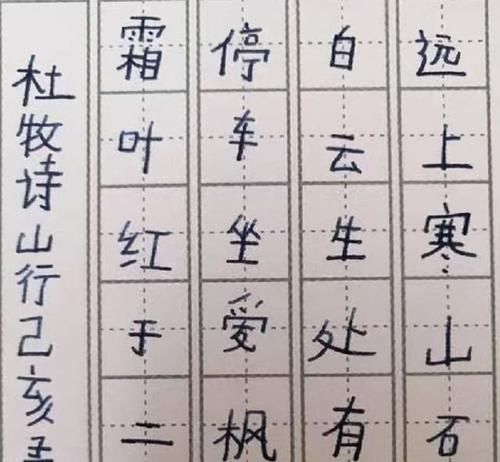 远上寒山石
白云生处有
停车坐爱枫
霜叶红于二
杜牧诗山行己亥